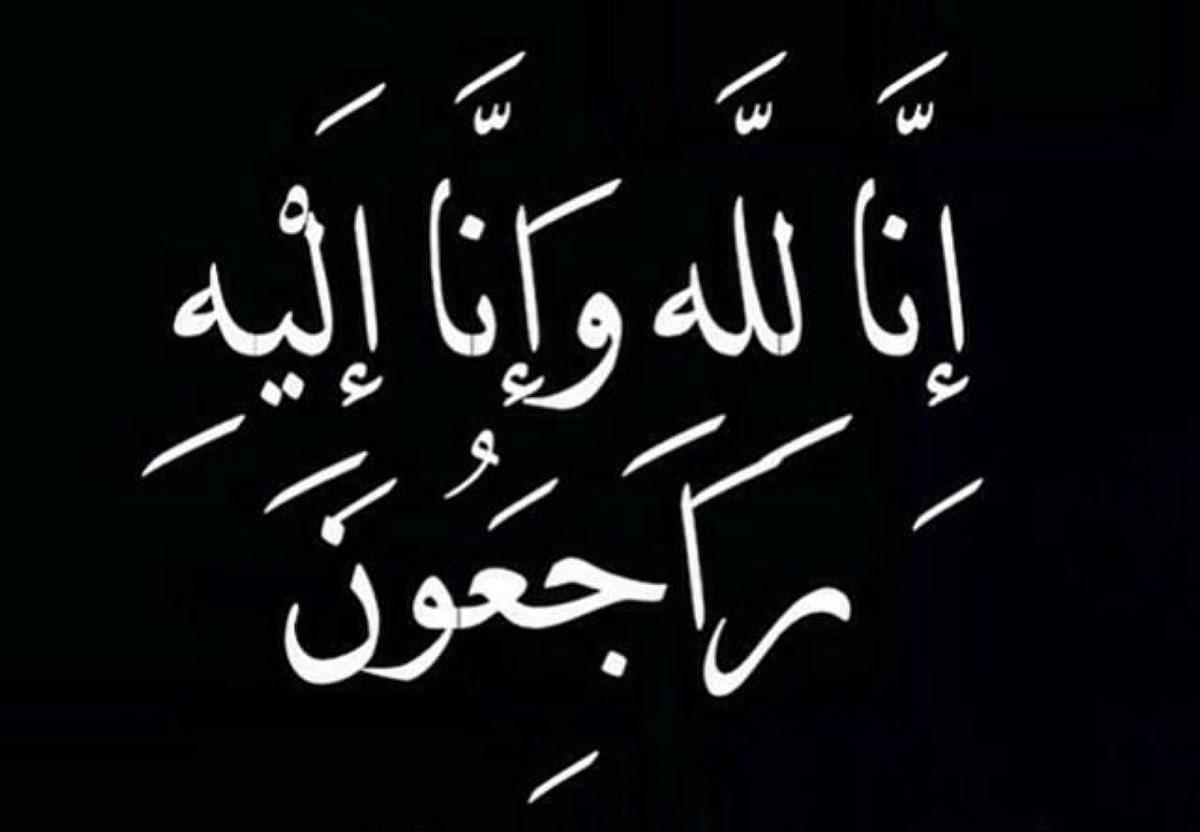 إِنَّا لله وَإِنَّا إِلَيْهِ
رَاجِعَُونَ